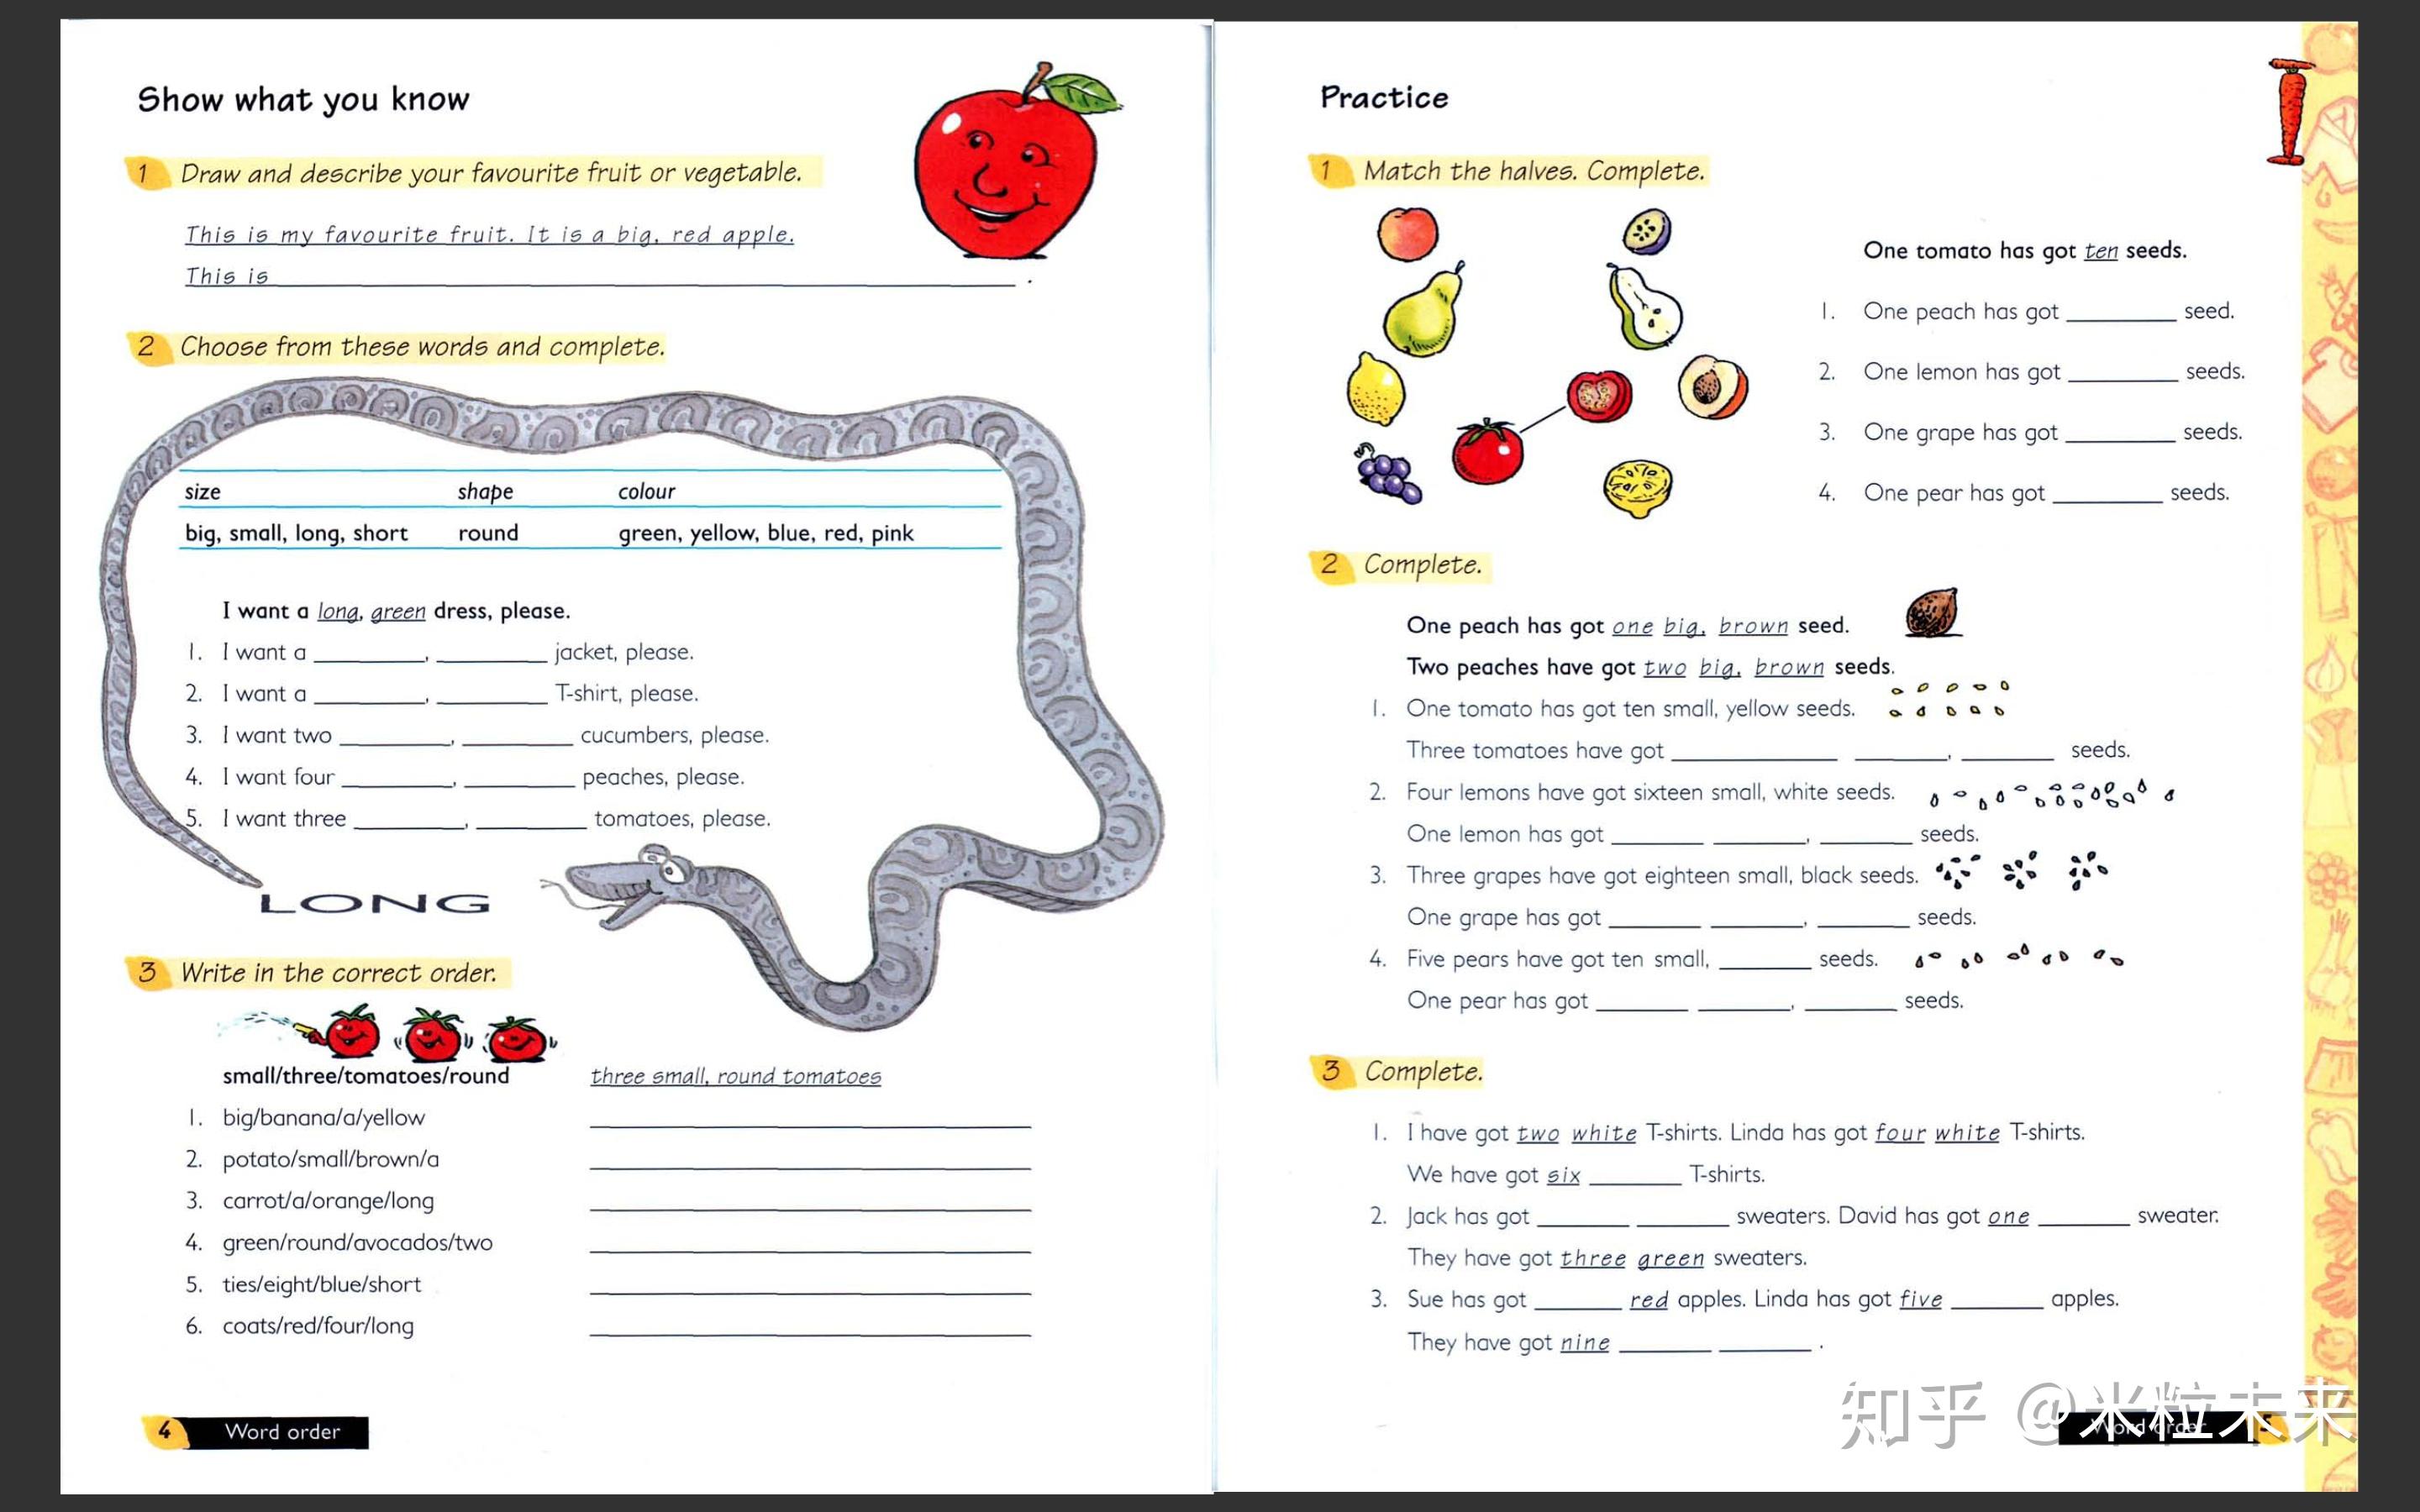 Show what you know
1 Draw and describe your favourite fruit or vegetable.
This is my favourite fruit. It is a big, red apple.
This is ______ .
2 Choose from these words and complete.
size shape colour
big, small, long, short round green, yellow, blue, red, pink
I want a long, green dress, please.
1. I want a ______, ______ jacket, please.
2. I want a ______, ______ T-shirt, please.
3. I want two ______, ______ cucumbers, please.
4. I want four ______, ______ peaches, please.
5. I want three ______, ______ tomatoes, please.
LONG
3 Write in the correct order.
small/three/tomatoes/round three small, round tomatoes
1. big/banana/a/yellow
2. potato/small/brown/a
3. carrot/a/orange/long
4. green/round/avocados/two
5. ties/eight/blue/short
6. coats/red/four/long
4 Word order
Practice
1 Match the halves. Complete.
One tomato has got ten seeds.
1. One peach has got ______ seed.
2. One lemon has got ______ seeds.
3. One grape has got ______ seeds.
4. One pear has got ______ seeds.
2 Complete.
One peach has got one big, brown seed.
Two peaches have got two big, brown seeds.
1. One tomato has got ten small, yellow seeds.
Three tomatoes have got ______ ______, ______ seeds.
2. Four lemons have got sixteen small, white seeds.
One lemon has got ______ ______, ______ seeds.
3. Three grapes have got eighteen small, black seeds.
One grape has got ______ ______, ______ seeds.
4. Five pears have got ten small, ______ seeds.
One pear has got ______ ______, ______ seeds.
3 Complete.
1. I have got two white T-shirts. Linda has got four white T-shirts.
We have got six ______ T-shirts.
2. Jack has got ______ ______ sweaters. David has got one ______ sweater.
They have got three green sweaters.
3. Sue has got ______ red apples. Linda has got five ______ apples.
They have got nine ______ ______ .
Word order
知乎 @米粒未来